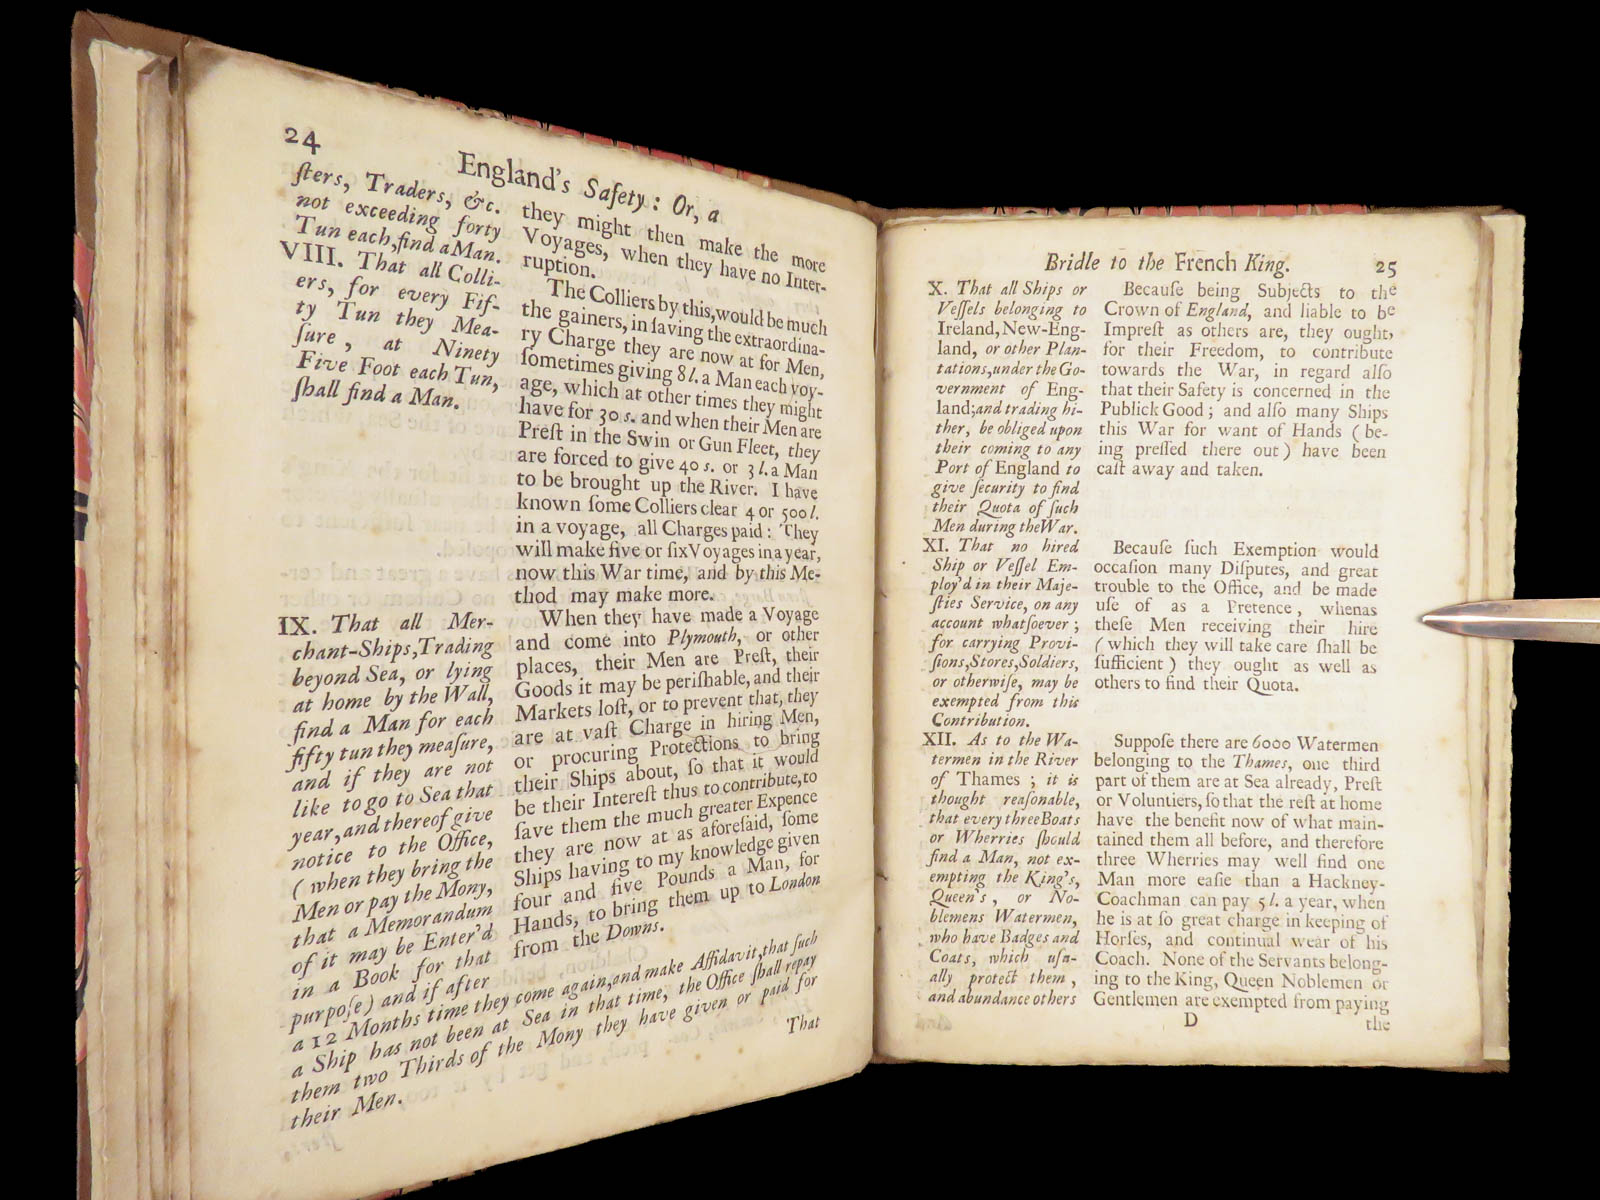 24
England's Safety: Or, a
ſters, Traders, &c.
not exceeding forty
Tun each, find a Man.
VIII. That all Colli-
ers, for every Fif-
ty Tun they Mea-
ſure, at Ninety
Five Foot each Tun,
ſhall find a Man.
IX. That all Mer-
chant-Ships, Trading
beyond Sea, or lying
at home by the Wall,
find a Man for each
fifty tun they meaſure,
and if they are not
like to go to Sea that
year, and thereof give
notice to the Office,
(when they bring the
Men or pay the Mony,
that a Memorandum
of it may be Enter'd
in a Book for that
purpoſe) and if after
they might then make the more
Voyages, when they have no Inter-
ruption.
The Colliers by this, would be much
the gainers, in ſaving the extraordina-
ry Charge they are now at for Men,
ſometimes giving 8 l. a Man each voy-
age, which at other times they might
have for 30 s. and when their Men are
Preſt in the Swin or Gun Fleet, they
are forced to give 40 s. or 3 l. a Man
to be brought up the River. I have
known ſome Colliers clear 4 or 500 l.
in a voyage, all Charges paid: They
will make five or ſix Voyages in a year,
now this War time, and by this Me-
thod may make more.
When they have made a Voyage
and come into Plymouth, or other
places, their Men are Preſt, their
Goods it may be periſhable, and their
Markets loſt, or to prevent that, they
are at vaſt Charge in hiring Men,
or procuring Protections to bring
their Ships about, ſo that it would
be their Intereſt thus to contribute, to
ſave them the much greater Expence
they are now at as aforeſaid, ſome
Ships having to my knowledge given
four and five Pounds a Man, for
Hands, to bring them up to London
from the Downs.
a 12 Months time they come again, and make Affidavit, that ſuch
a Ship has not been at Sea in that time, the Office ſhall repay
them two Thirds of the Mony they have given or paid for
their Men.
That
Bridle to the French King.
25
X. That all Ships or
Veſſels belonging to
Ireland, New-Eng-
land, or other Plan-
tations, under the Go-
vernment of Eng-
land; and trading hi-
ther, be obliged upon
their coming to any
Port of England to
give ſecurity to find
their Quota of ſuch
Men during the War.
XI. That no hired
Ship or Veſſel Em-
ploy'd in their Maje-
ſties Service, on any
account whatſoever;
for carrying Provi-
ſions, Stores, Soldiers,
or otherwiſe, may be
exempted from this
Contribution.
XII. As to the Wa-
termen in the River
of Thames; it is
thought reaſonable,
that every three Boats
or Wherries ſhould
find a Man, not ex-
empting the King's,
Queen's, or No-
blemens Watermen,
who have Badges and
Coats, which uſu-
ally protect them,
and abundance others
Becauſe being Subjects to the
Crown of England, and liable to be
Impreſt as others are, they ought,
for their Freedom, to contribute
towards the War, in regard alſo
that their Safety is concerned in the
Publick Good; and alſo many Ships
this War for want of Hands (be-
ing preſſed there out) have been
caſt away and taken.
Becauſe ſuch Exemption would
occaſion many Diſputes, and great
trouble to the Office, and be made
uſe of as a Pretence, whenas
theſe Men receiving their hire
(which they will take care ſhall be
ſufficient) they ought as well as
others to find their Quota.
Suppoſe there are 6000 Watermen
belonging to the Thames, one third
part of them are at Sea already, Preſt
or Voluntiers, ſo that the reſt at home
have the benefit now of what main-
tained them all before, and therefore
three Wherries may well find one
Man more eaſie than a Hackney-
Coachman can pay 5 l. a year, when
he is at ſo great charge in keeping of
Horſes, and continual wear of his
Coach. None of the Servants belong-
ing to the King, Queen Noblemen or
Gentlemen are exempted from paying
D
the